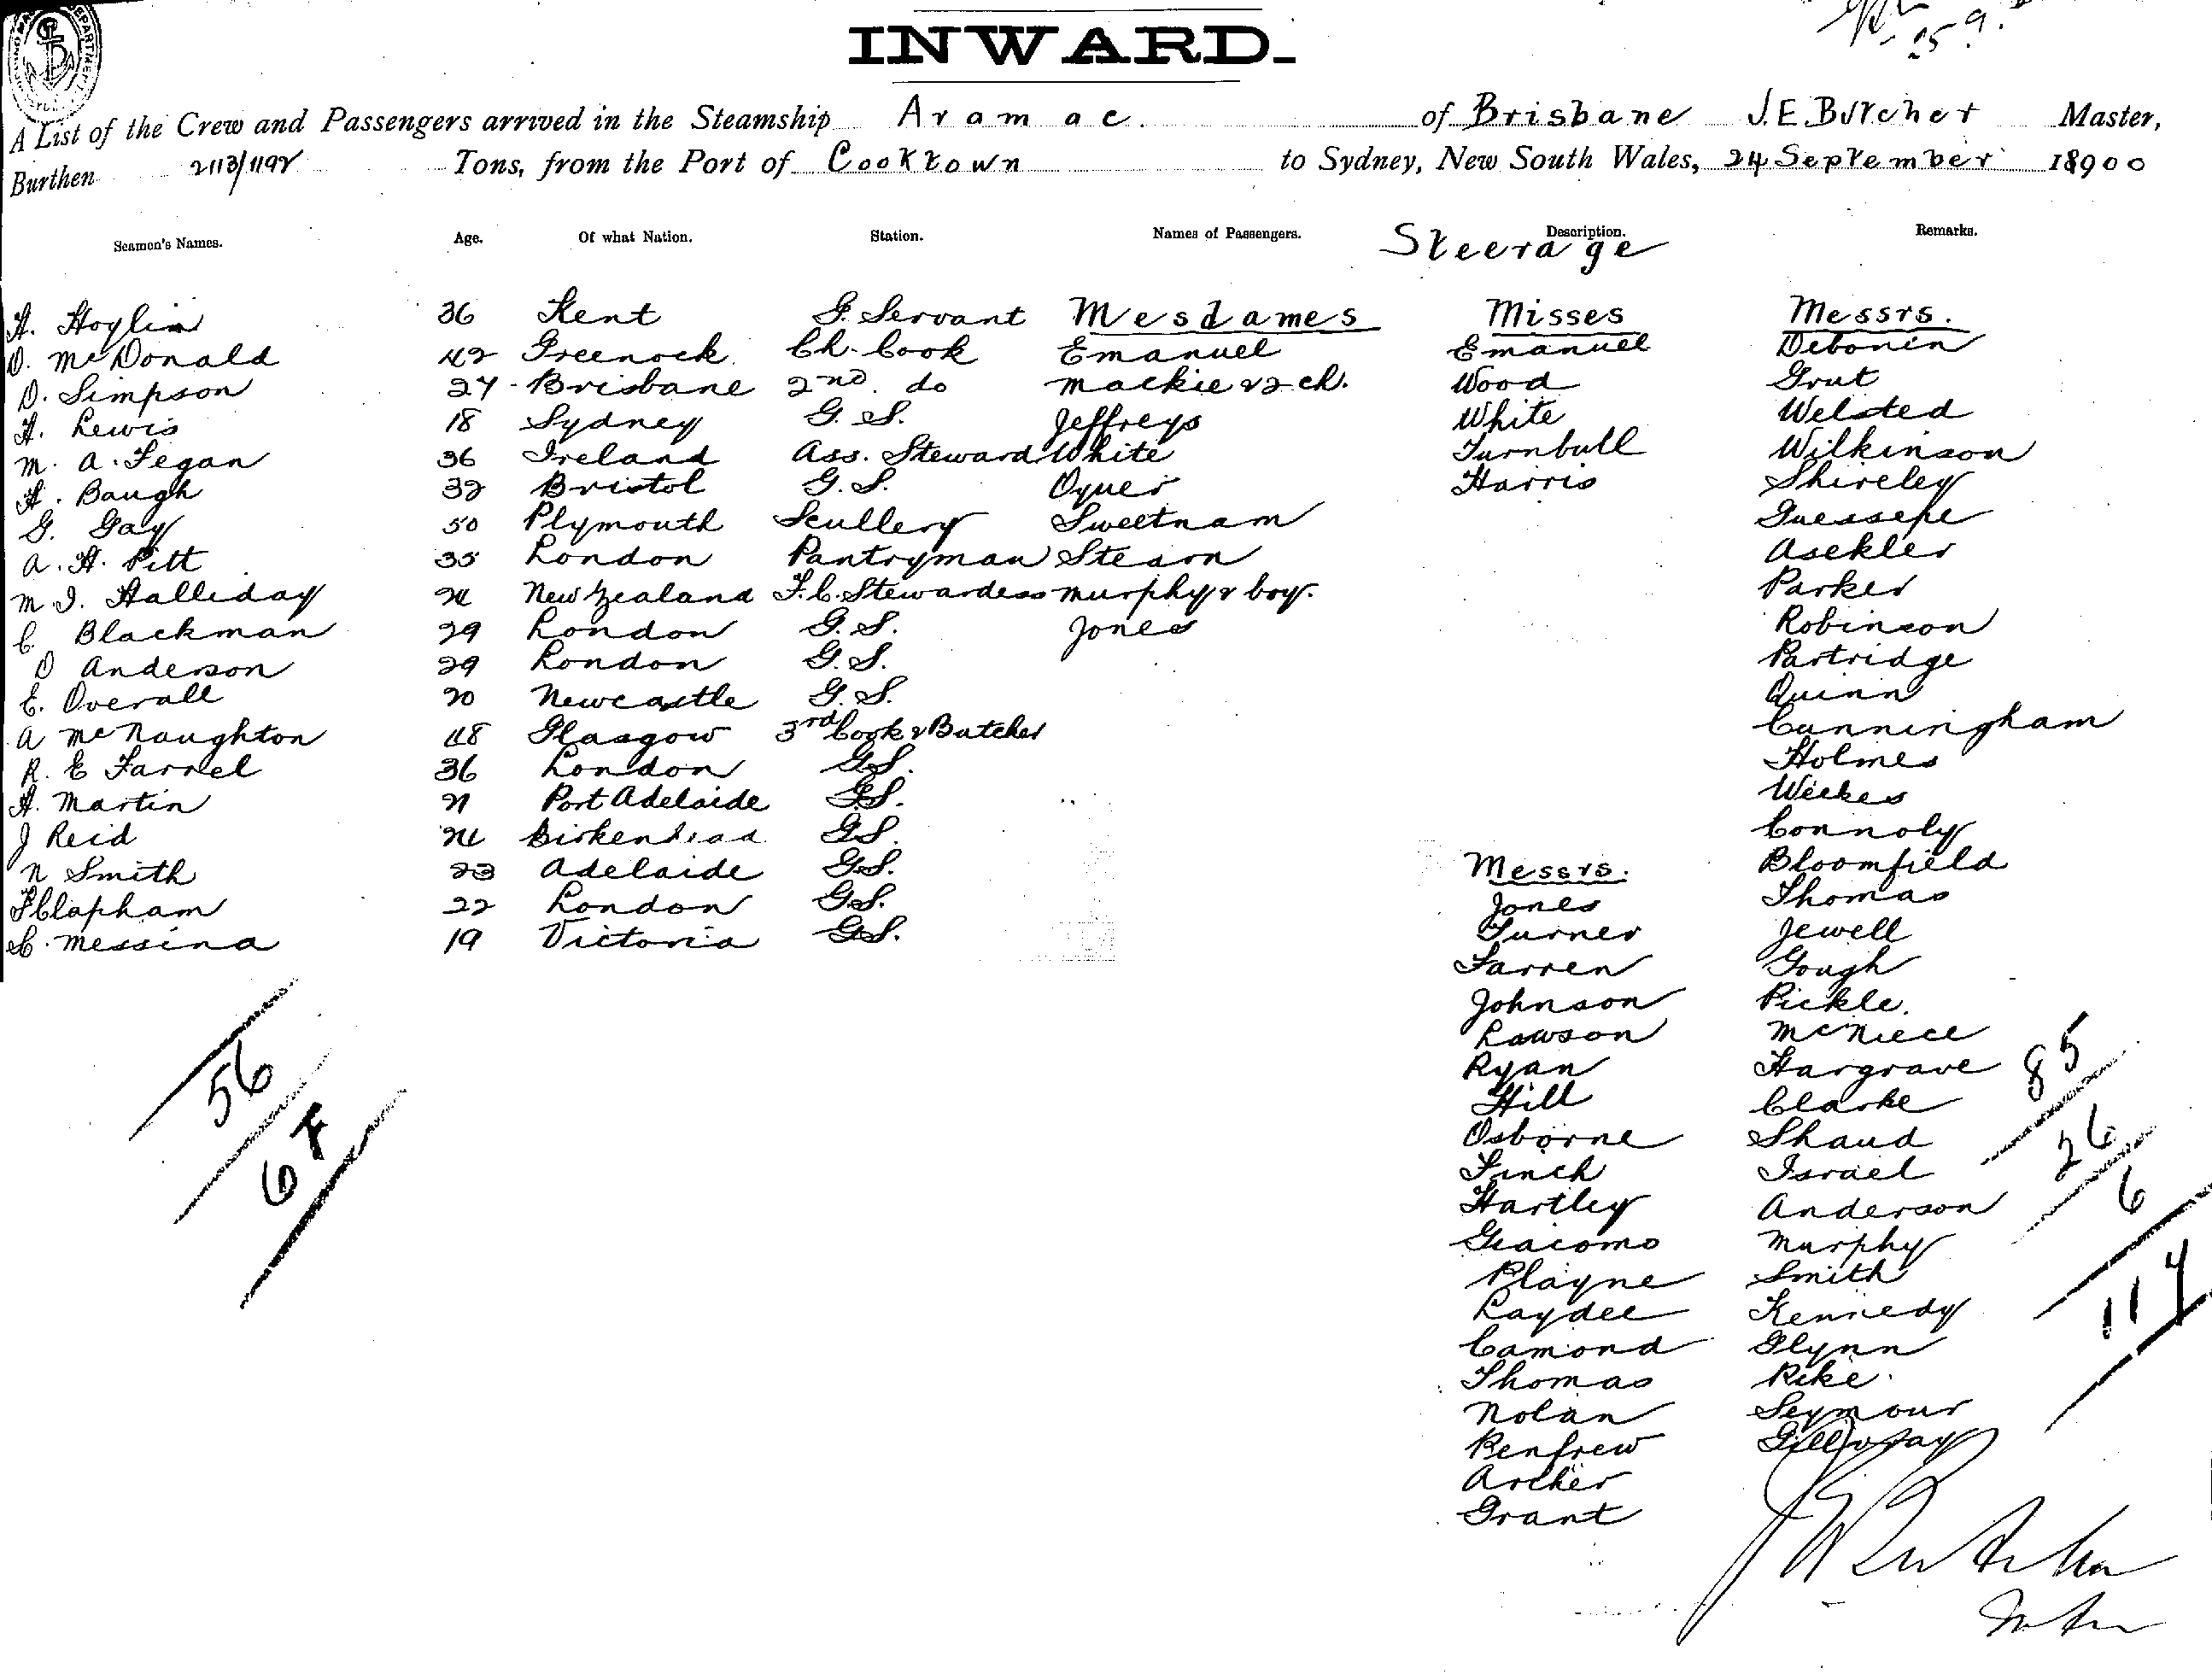 INWARD.
A List of the Crew and Passengers arrived in the Steamship Aramac. of Brisbane J.E.Butcher Master,
Burthen 2113/1192 Tons, from the Port of Cooktown to Sydney, New South Wales, 24 September 18900
Seamen's Names. Age. Of what Nation. Station. Names of Passengers. Description. Remarks.
Steerage
H. Hoylin 36 Kent G. Servant Mesdames Misses Messrs.
D. McDonald 42 Greenock Ch. Cook Emanuel Emanuel Debonin
D. Simpson 27 Brisbane 2nd. do Mackie & 2 ch. Wood Grut
H. Lewis 18 Sydney G.S. Jeffreys White Welsted
M. A. Fegan 36 Ireland Ass. Steward White Turnbull Wilkinson
H. Baugh 32 Bristol G.S. Oyner Harris Shireley
G. Gay 50 Plymouth Scullery Sweetnam Guessepe
A. H. Pitt 35 London Pantryman Stearn Asekler
M. I. Halliday 24 New Zealand F.C. Stewardess Murphy & boy. Parker
C. Blackman 29 London G.S. Jones Robinson
D Anderson 29 London G.S. Partridge
E. Overall 20 Newcastle G.S. Quinn
A McNaughton 48 Glasgow 3rd Cook & Butcher Cunningham
R. E Farrel 36 London G.S. Holmes
H. Martin 21 Port Adelaide G.S. Weekes
J Reid 24 Birkenhead G.S. Connoly
N Smith 23 Adelaide G.S. Messrs. Bloomfield
F Clapham 22 London G.S. Jones Thomas
C. Messina 19 Victoria G.S. Turner Jewell
Farren Gough
Johnson Pickle.
Lawson McNiece
56 Ryan Hargrave 85
Hill Clarke
67 Osborne Shaud 26
Finch Israel
Hartley Anderson 6
Giacomo Murphy
Playne Smith 117
Laydee Kennedy
Camond Glynn
Thomas Rike.
Nolan Seymour
Renfrew
Archer
Grant
J E Butcher
Master